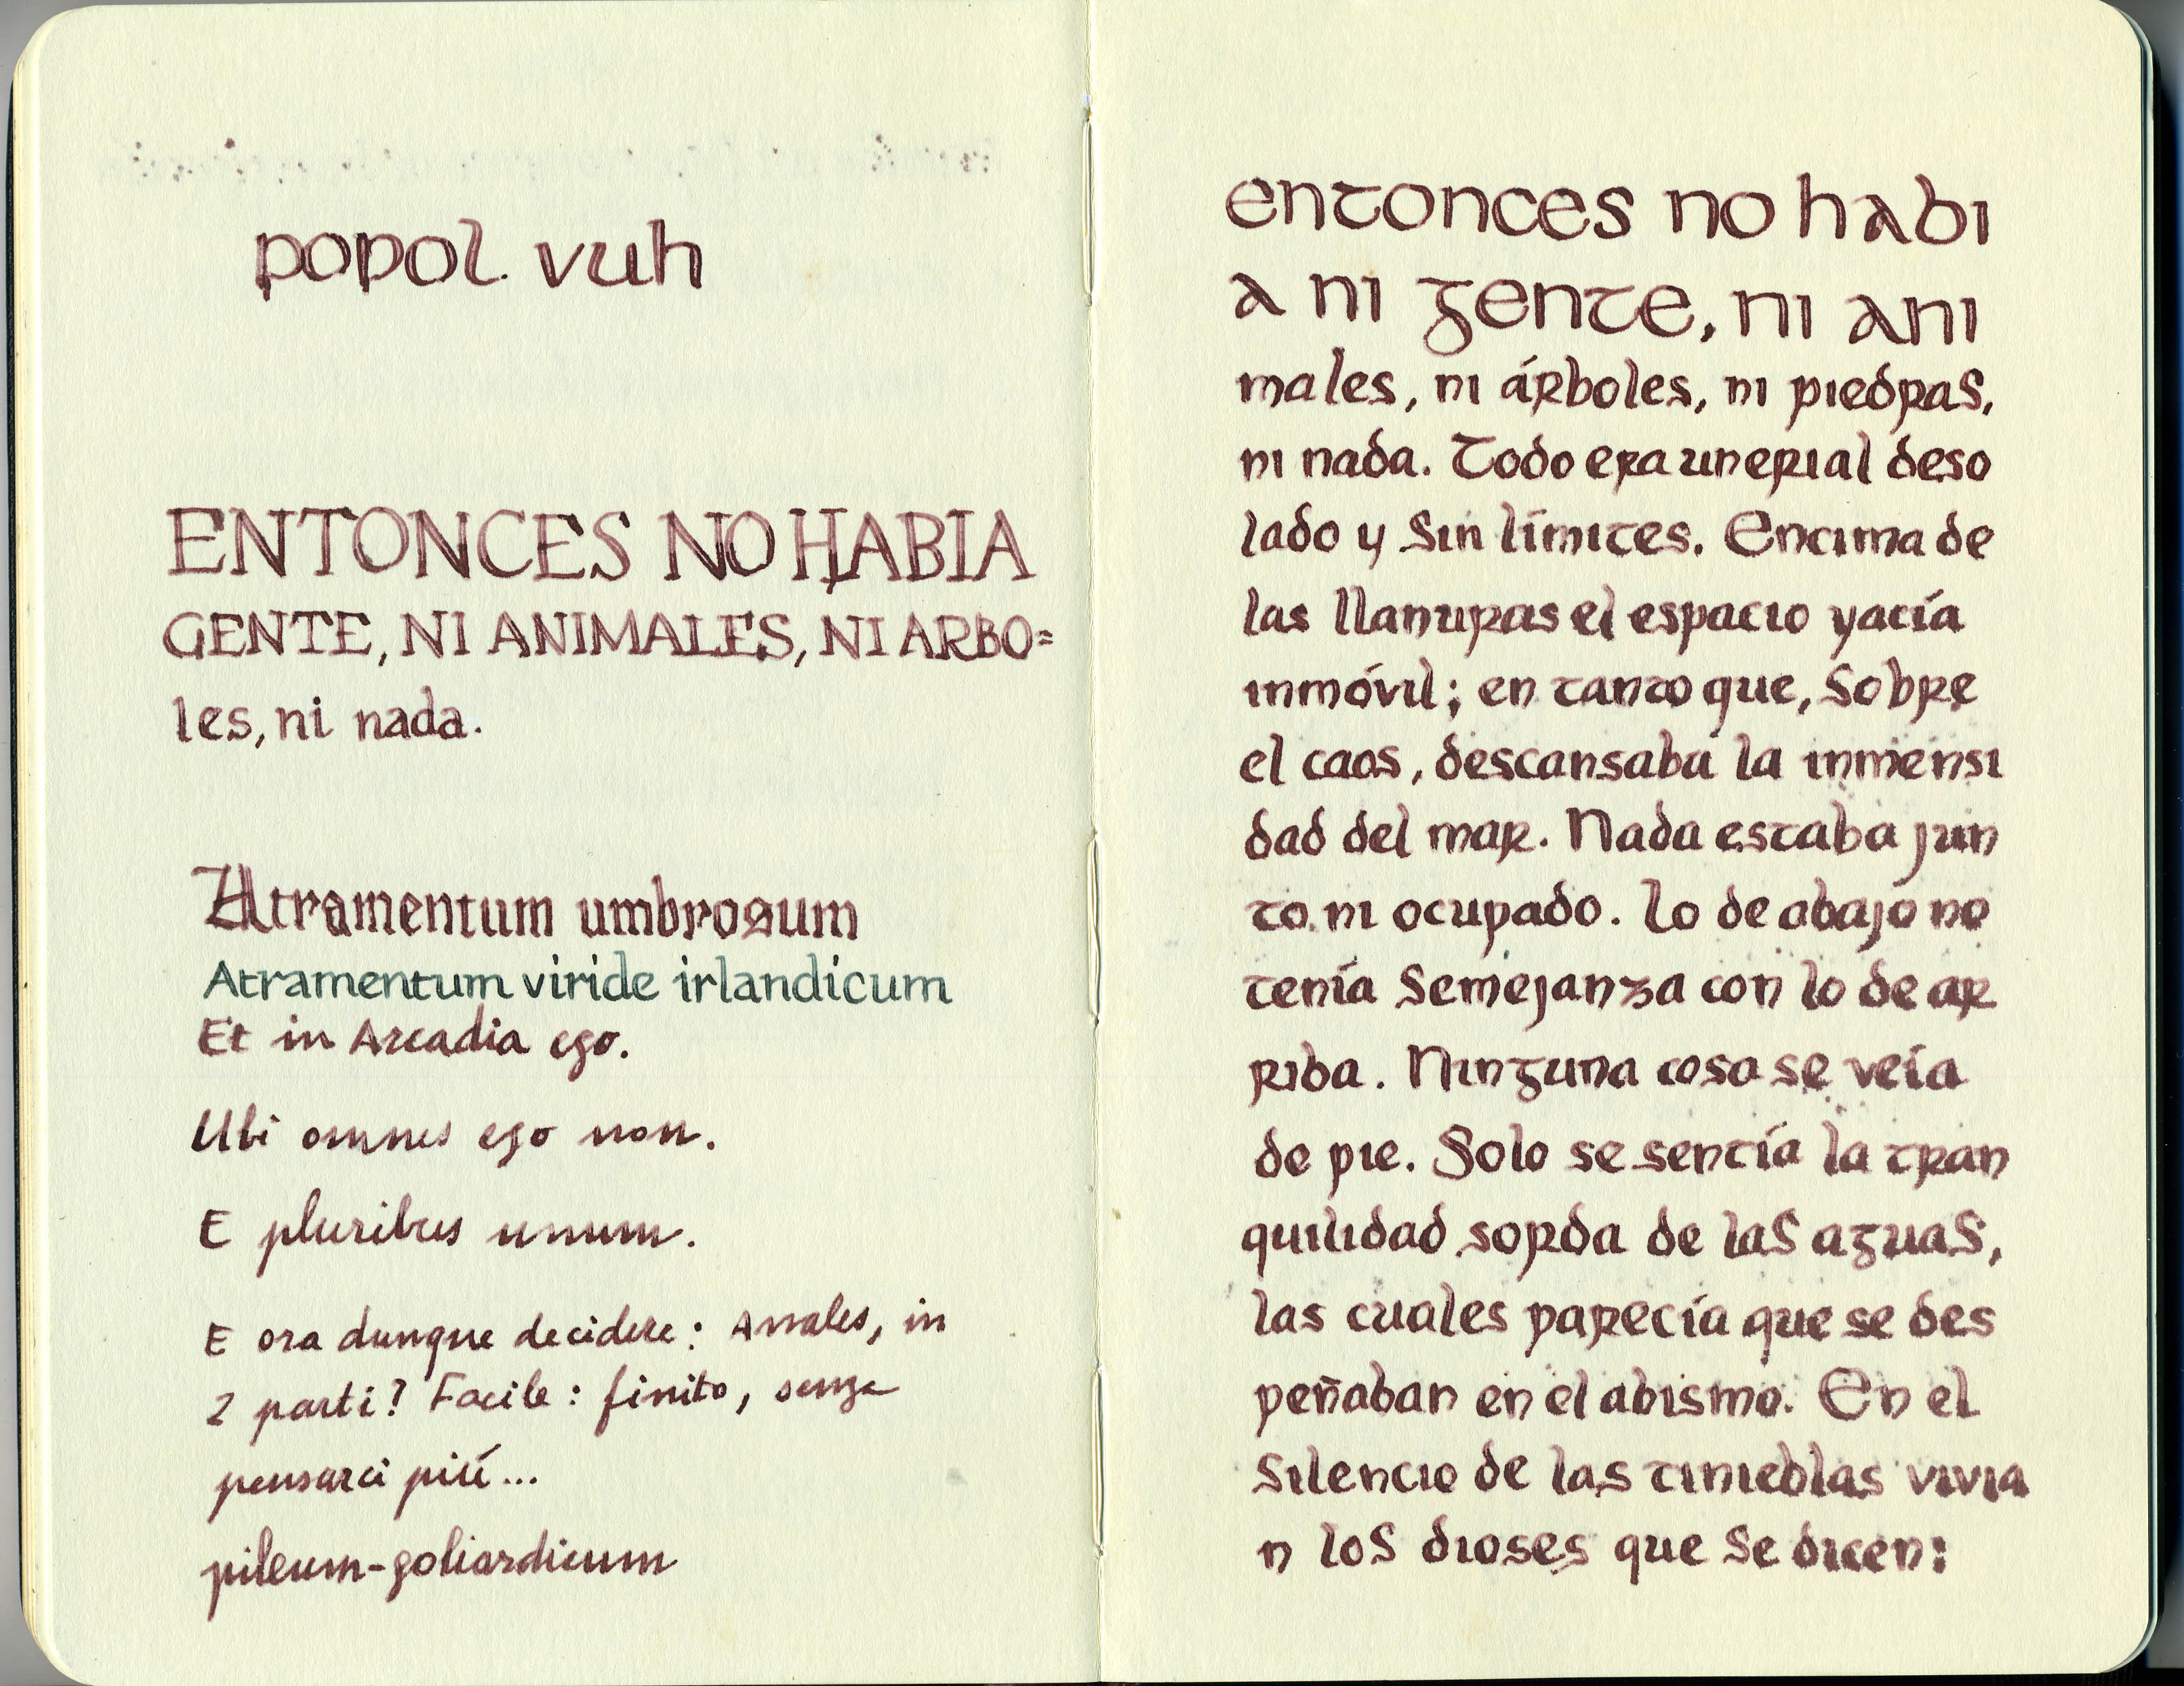 popol vuh
ENTONCES NO HABIA
GENTE, NI ANIMALES, NI ARBO=
les, ni nada.
Atramentum umbrosum
Atramentum viride irlandicum
Et in Arcadia ego.
Ubi omnes ego non.
E pluribus unum.
E ora dunque decidere: Annales, in
2 parti? Facile: finito, senza
pensarci più...
pileum-goliardicum
entonces no habi
a ni gente, ni ani
males, ni árboles, ni piedras,
ni nada. Todo era un erial deso
lado y sin límites. Encima de
las llanuras el espacio yacía
inmóvil; en tanto que, sobre
el caos, descansaba la inmensi
dad del mar. Nada estaba jun
to ni ocupado. Lo de abajo no
tenía semejanza con lo de ar
riba. Ninguna cosa se veía
de pie. Solo se sentía la tran
quilidad sorda de las aguas,
las cuales parecía que se des
peñaban en el abismo. En el
silencio de las tinieblas vivia
n los dioses que se dicen: